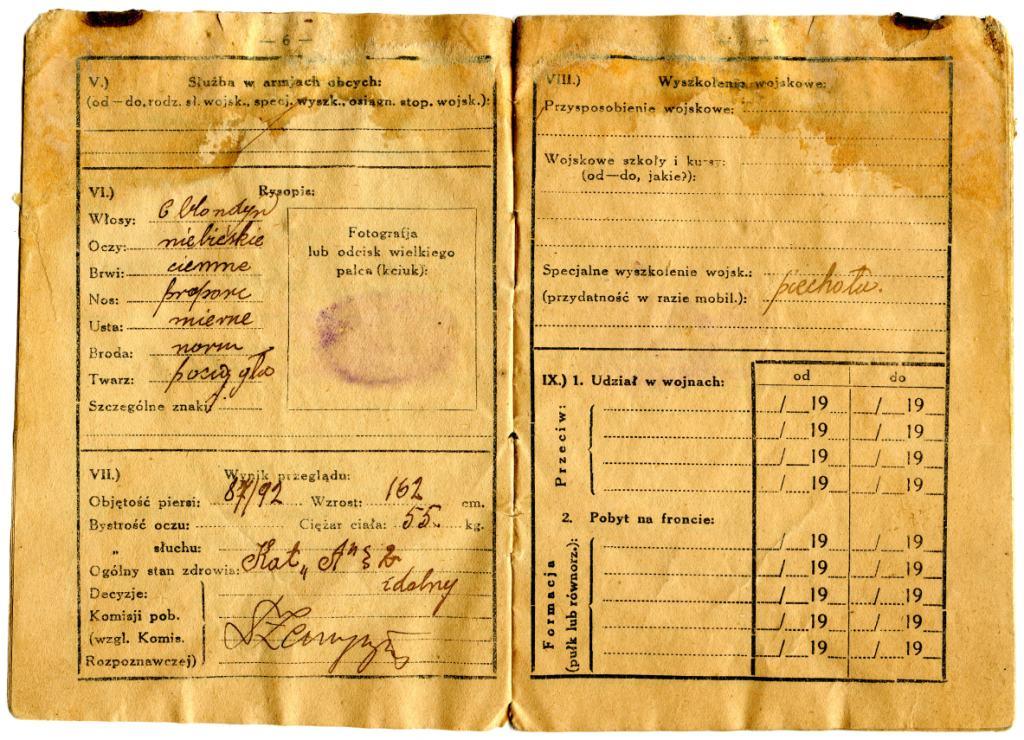 — 6 —
V.) Służba w armjach obcych:
(od—do, rodz. sł. wojsk., specj. wyszk., osiągn. stop. wojsk.):
VI.) Rysopis:
Włosy: blondyn
Oczy: niebieskie
Brwi: ciemne
Nos: proporc
Usta: mierne
Broda: norm
Twarz: pociągła
Szczególne znaki:
Fotografja
lub odcisk wielkiego
palca (kciuk):
VII.) Wynik przeglądu:
Objętość piersi: 87/92 Wzrost: 162 cm.
Bystrość oczu: Ciężar ciała: 55 kg.
„ słuchu:
Ogólny stan zdrowia: Kat „A" § 2
zdolny
Decyzje:
Komisji pob.
(wzgl. Komis.
Rozpoznawczej)
VIII.) Wyszkolenie wojskowe:
Przysposobienie wojskowe:
Wojskowe szkoły i kursy:
(od—do, jakie?):
Specjalne wyszkolenie wojsk.:
(przydatność w razie mobil.): piechota.
IX.) 1. Udział w wojnach: od do
Przeciw:
/ 19 / 19
/ 19 / 19
/ 19 / 19
/ 19 / 19
2. Pobyt na froncie:
Formacja
(pułk lub równorz.):
/ 19 / 19
/ 19 / 19
/ 19 / 19
/ 19 / 19
/ 19 / 19